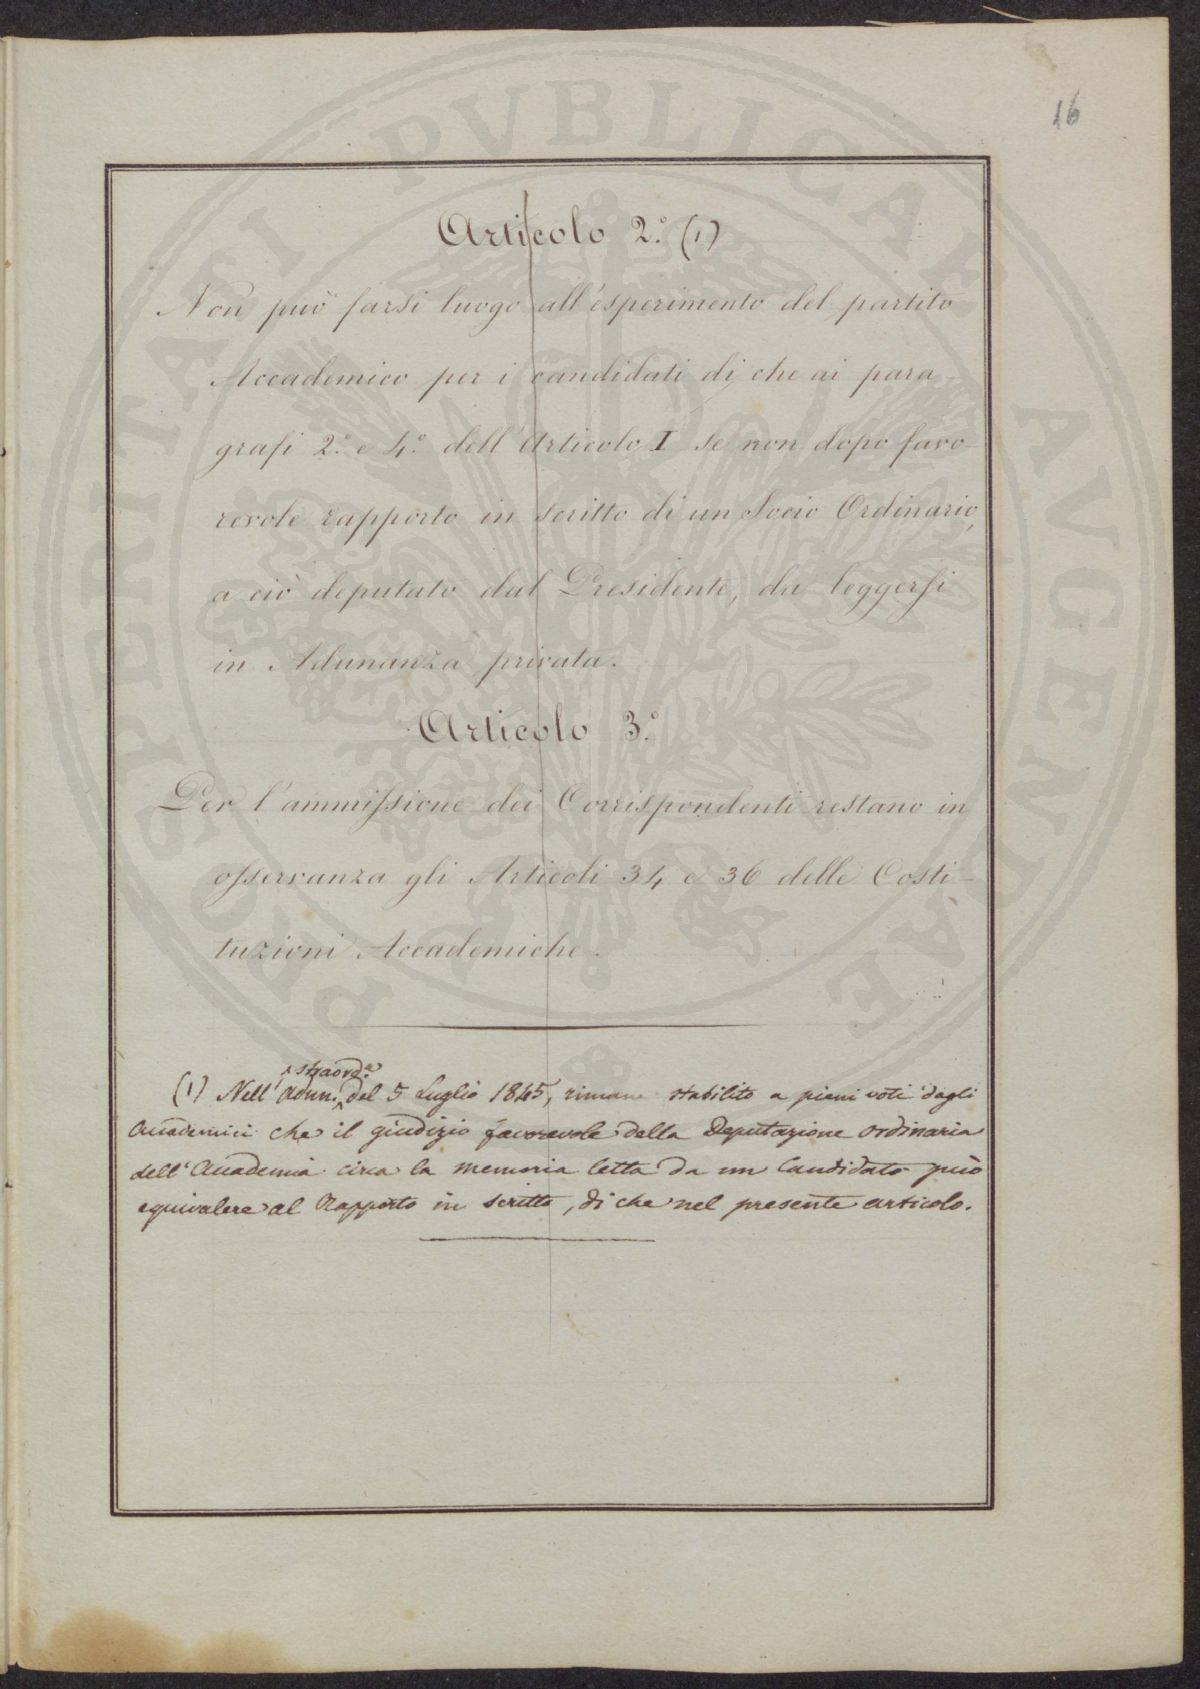 16
Articolo 2.° (1)
Non può farsi luogo all'esperimento del partito
Accademico per i candidati di che ai para-
grafi 2.° e 4.° dell'Articolo I se non dopo favo-
revole rapporto in scritto di un Socio Ordinario,
a ciò deputato dal Presidente, da leggersi
in Adunanza privata.
Articolo 3.°
Per l'ammissione dei Corrispondenti restano in
osservanza gli Articoli 34 e 36 delle Costi-
tuzioni Accademiche.
straord.ª
(1) Nell'Adun. del 5 Luglio 1845, rimane stabilito a pieni voti dagli
Accademici che il giudizio favorevole della Deputazione ordinaria
dell'Accademia circa la memoria letta da un Candidato può
equivalere al Rapporto in scritto, di che nel presente articolo.
PROSPERITATI PVBLICAE AVGENDAE